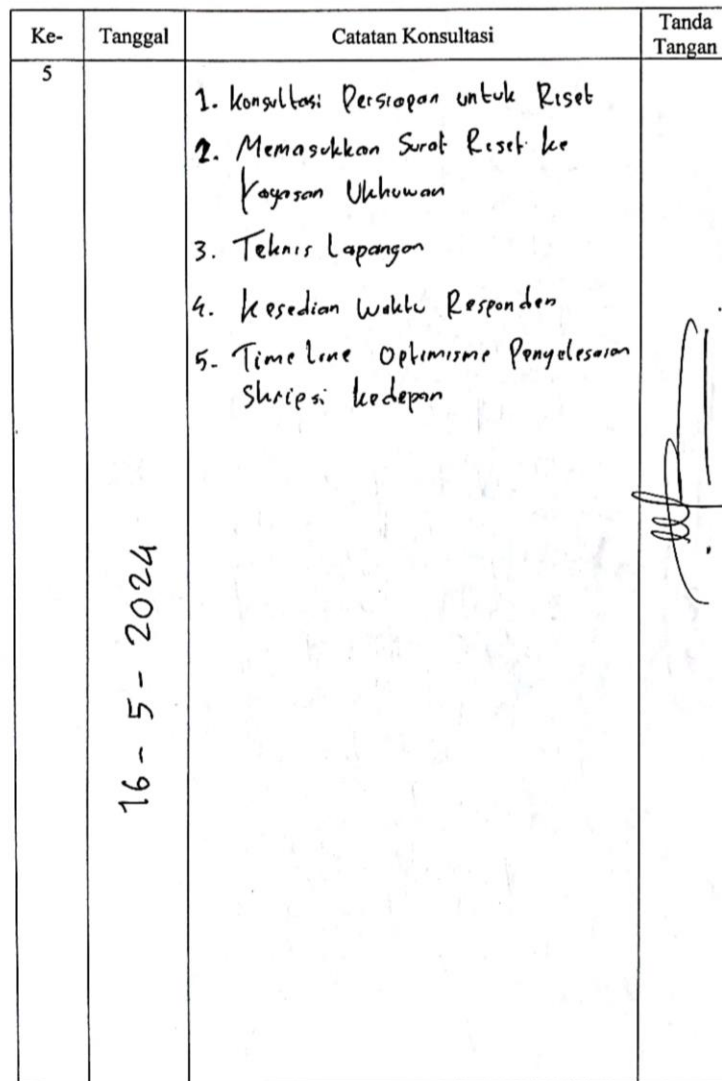 Ke- Tanggal Catatan Konsultasi Tanda
Tangan
5
16 - 5 - 2024
1. Konsultasi Persiapan untuk Riset
2. Memasukkan Surat Riset ke
Yayasan Ukhuwan
3. Teknis Lapangan
4. Kesedian Waktu Responden
5. Time Line Optimisme Penyelesaian
Skripsi kedepan